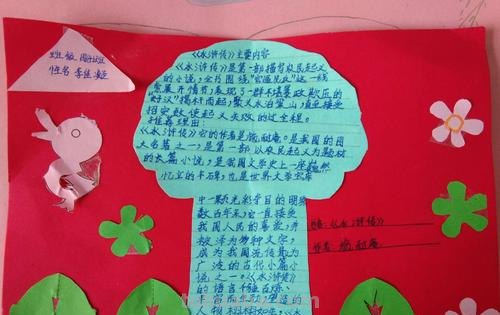 班级
姓名 李佳凝
《水浒传》主要内容
《水浒传》是第一部描写农民起义
的小说,全书围绕"官逼民反"这一线
索展开情节,表现了一群不堪暴政欺压的
"好汉"揭竿而起,聚义水泊梁山,直至接受
招安致使起义失败的全过程。
推荐理由:
《水浒传》它的作者是施耐庵。是我国的四
大名著之一,是第一部以农民起义为题材
的长篇小说,是我国文学史上一座巍然
屹立的丰碑,也是世界文学宝库
中一颗光彩夺目的明珠
数百年来,它一直深受
我国人民的喜爱,并
被译为多种文字,
成为我国流传最为
广泛的古代小篇小
说之一。《水浒传》
的语言千锤百炼、
丰富而生动,塑造的
人物栩栩如生。《水
书名:《水浒传》
作者:施耐庵